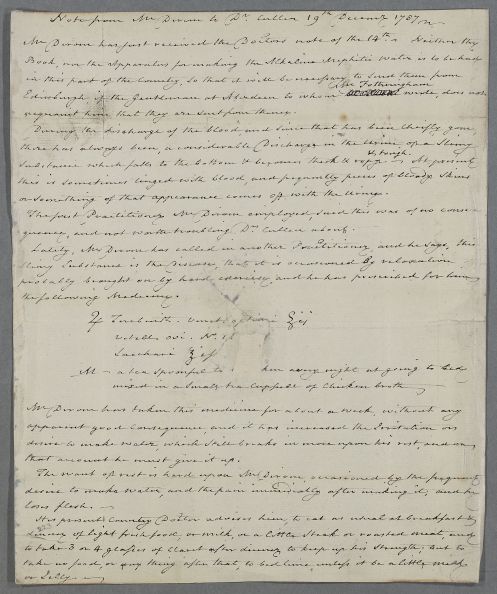 Note from Mr Dirom to Dr. Cullen 19th Decemr 1787
Mr Dirom has just received the Doctors note of the 14th. Neither the
Book, nor the Apparatus for making the Alkaline Mephitic Water is to be had
in this part of the Country, so that it will be necessary to send them from
Mr Fotheringham
Edinburgh if the Gentleman at Aberdeen to whom wrote, does not
him that they are sent from thence.
During the discharge of the blood, and since that has been chiefly gone,
there has always been, a considerable Discharge in the Urine of a Slimy
& tough
Substance which falls to the bottom & becomes thick & ropy. — At present
this is sometimes tinged with blood, and frequently pieces of bloody Skins
or something of that appearance comes off with the Urine.
The first Practitioner Mr Dirom employed, said this was of no conse-
quence, and not worth troubling Dr Cullen about.
Lately, Mr Dirom has called in another Practitioner and he says, this
slimy Substance is the Disease, that it is occasioned By relaxation
probably brought on by hard exercise, and he has prescribed for him
the following Medicine.
Terebinth. Venet. ʒij
Vitelli ovi. No.
Sacchari ʒ
M — a tea spoonful to every night at going to bed
mixed in a small tea cupfull of Chicken broth
Mr Dirom has taken this medicine for about a week, without any
apparent good Consequence, and it has increased the Irritation or
desire to make Water, which still breaks in more upon his rest, and on
that account he must give it up.
The want of rest is hard upon Mr Dirom, occasioned by the frequent
desire to make water, and the pain immediately after making it, and he
loses flesh. —
His present Country Doctor advises him, to eat as usual at breakfast &
dinner of light fresh food, or milk, or a little Steak or roasted meat, and
to take 3 or 4 glasses of Claret after dinner to keep up his Strength; but to
take no food, or any thing after that, to bed time, unless it be a little milk
or Jelly. —